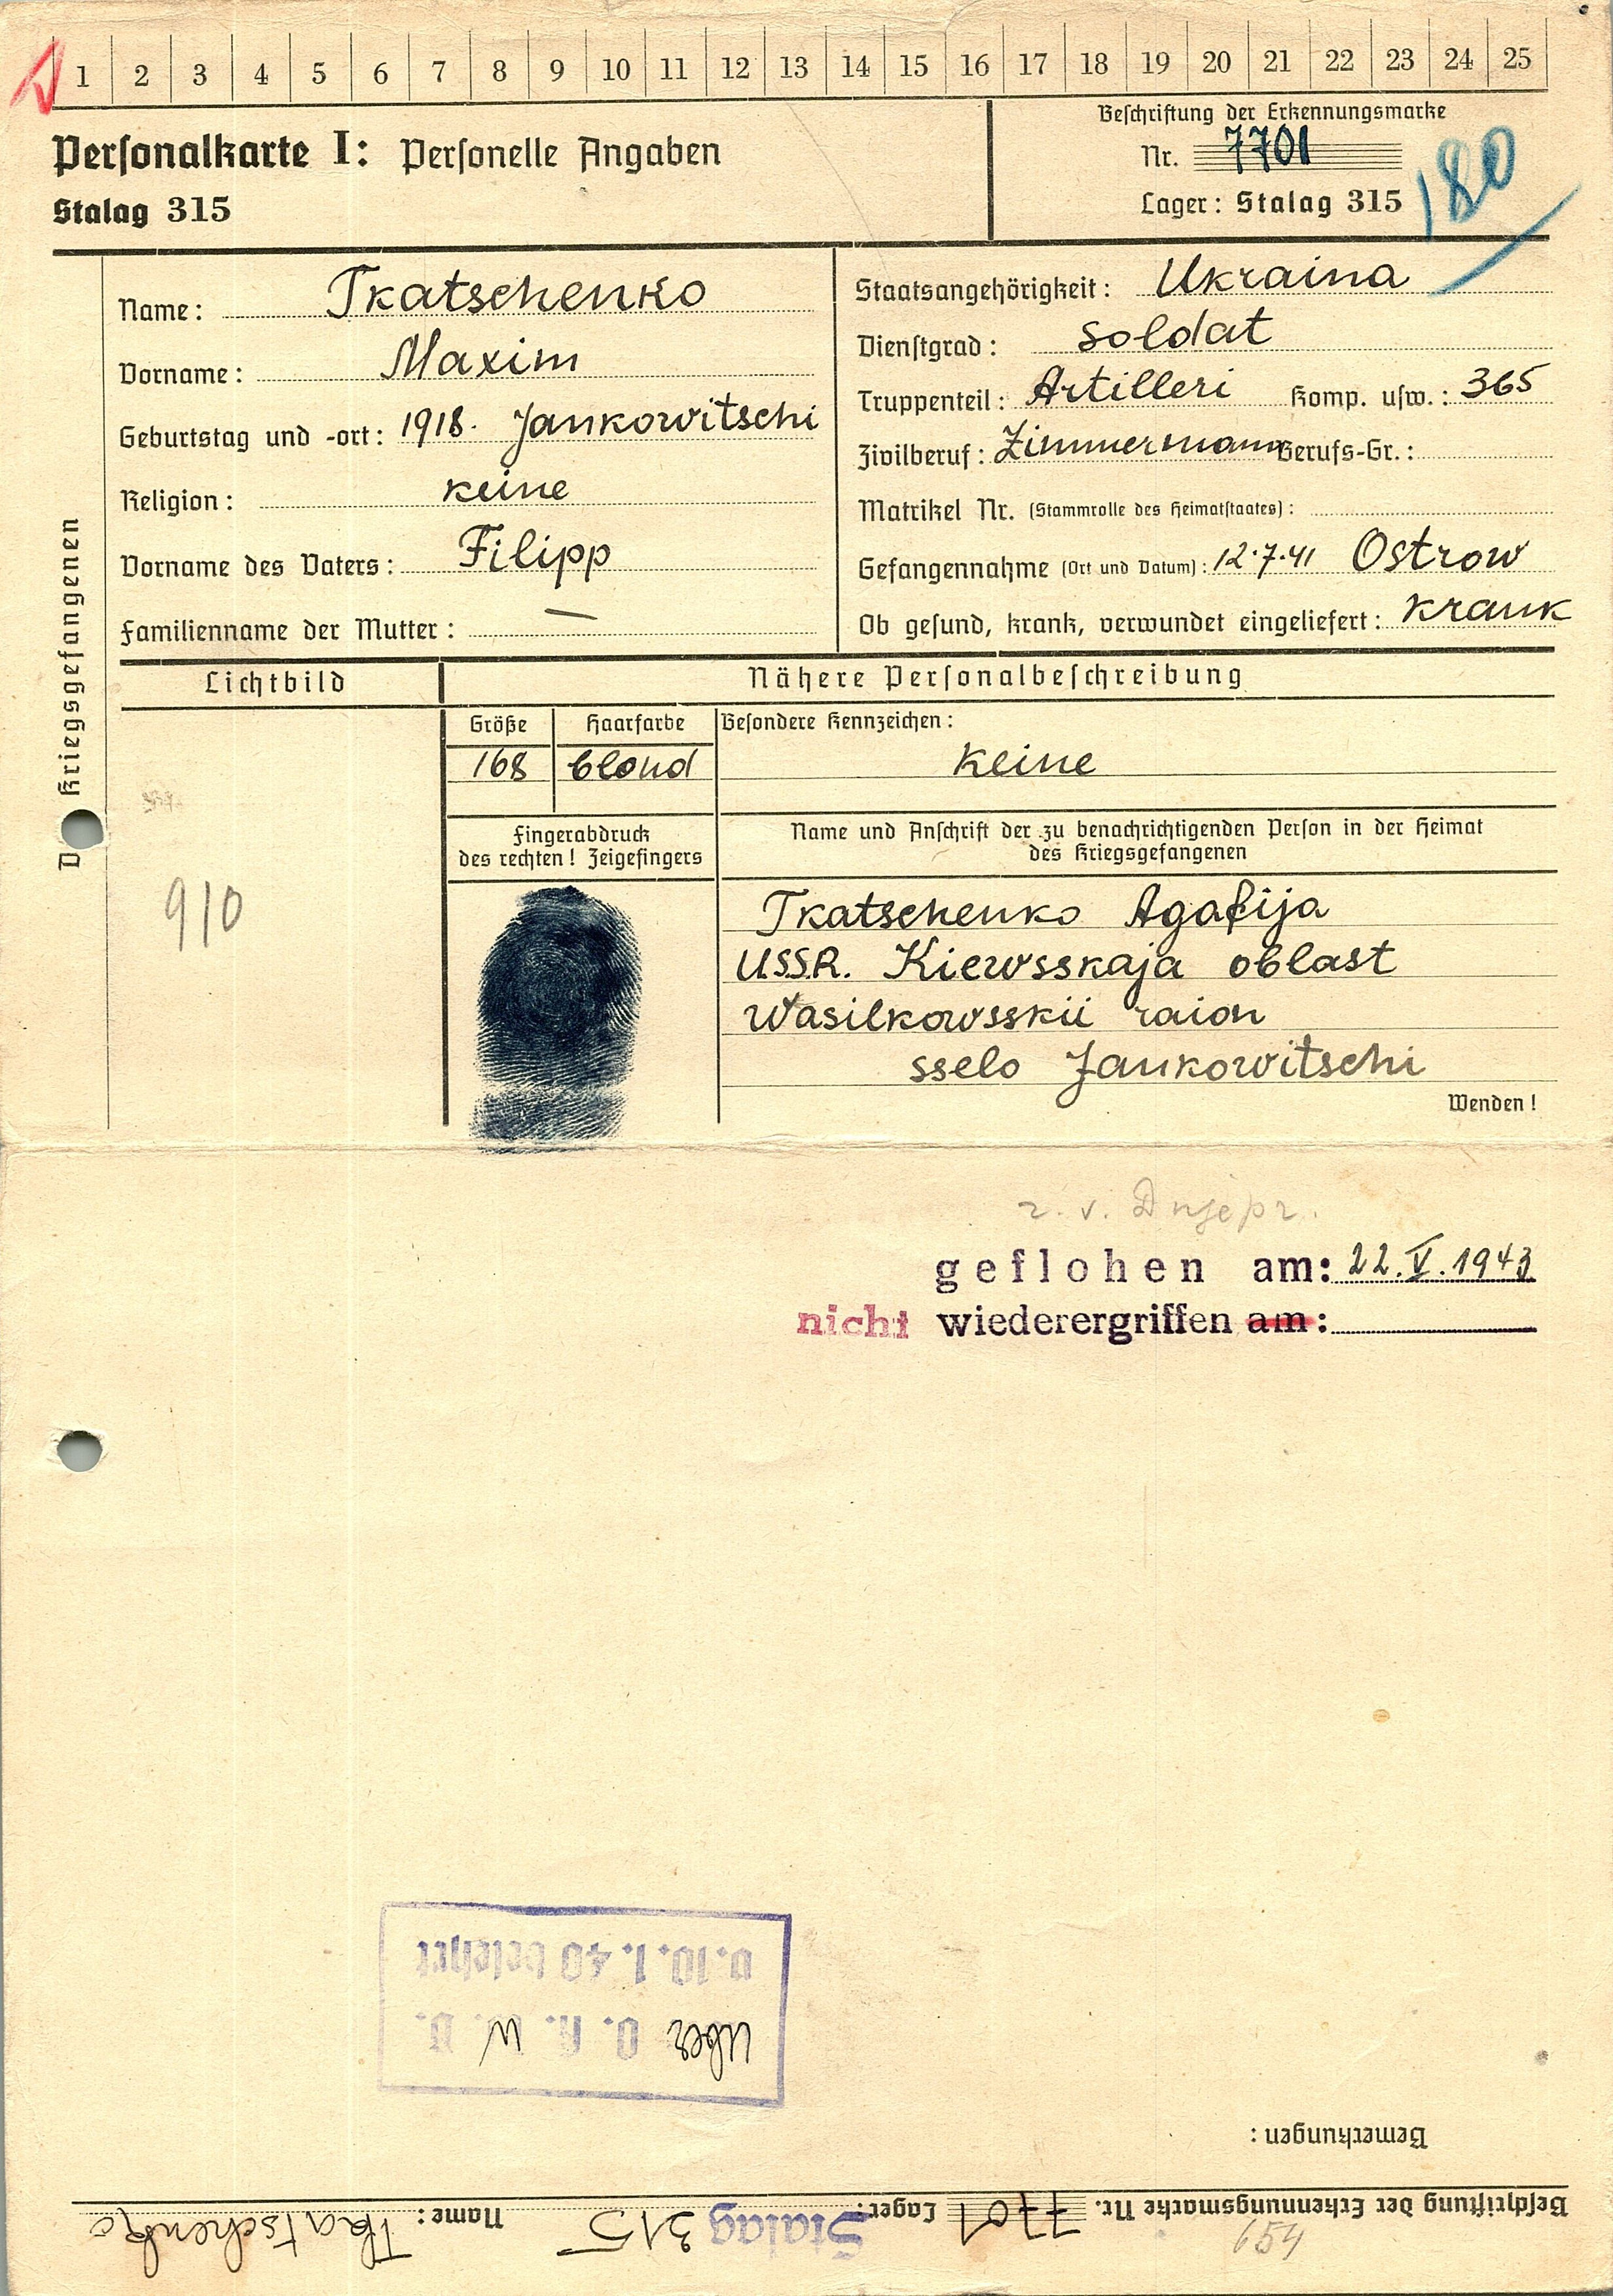 1 2 3 4 5 6 7 8 9 10 11 12 13 14 15 16 17 18 19 20 21 22 23 24 25
Personalkarte I: Personelle Angaben
Stalag 315
Beschriftung der Erkennungsmarke
Nr. 7701
Lager: Stalag 315
180
Des Kriegsgefangenen
Name: Tkatschenko
Vorname: Maxim
Geburtstag und -ort: 1918. Jankowitschi
Religion: keine
Vorname des Vaters: Filipp
Familienname der Mutter: —
Staatsangehörigkeit: Ukraina
Dienstgrad: soldat
Truppenteil: Artilleri Komp. usw.: 365
Zivilberuf: Zimmermann Berufs-Gr.:
Matrikel Nr. (Stammrolle des Heimatstaates):
Gefangennahme (Ort und Datum): 12.7.41 Ostrow
Ob gesund, krank, verwundet eingeliefert: krank
Lichtbild
Nähere Personalbeschreibung
Größe Haarfarbe Besondere Kennzeichen:
168 blond keine
Fingerabdruck
des rechten! Zeigefingers
Name und Anschrift der zu benachrichtigenden Person in der Heimat
des Kriegsgefangenen
910
Tkatschenko Agafija
USSR. Kiewsskaja oblast
Wasilkowsskii raion
sselo Jankowitschi
Wenden!
z. v. Dnjepr.
geflohen am: 22.V.1943
nicht wiederergriffen am:
Über O. K. W. V.
v. 10. 1. 40 belehrt
Bemerkungen:
Beschriftung der Erkennungsmarke Nr. 7701 Lager: Stalag 315 Name: Tkatschenko
654